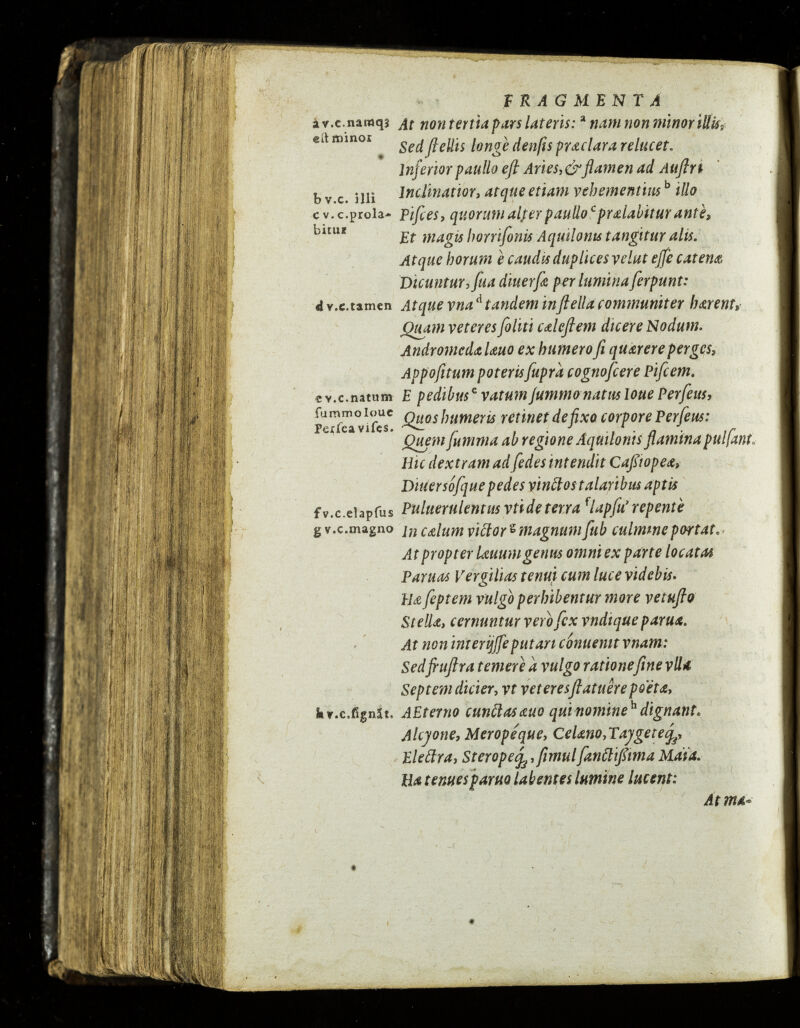 FRAGMENTA
a v.c.namq; At non tertia pars lateris: ª nam non minor illis,
est minor Sed stellis longè densis præclara relucet.
Inferior paullo est Aries, & flamen ad Austri
b v.c. illi Inclinatior, atque etiam vehementius ᵇ illo
c v.c.prola- Pisces, quorum alter paullo ᶜ prælabitur antè,
bitur Et magis horrisonis Aquilonis tangitur alis.
Atque horum è caudis duplices velut esse catenæ
Dicuntur, sua diuersæ per lumina serpunt:
d v.c.tamen Atque vna ᵈ tandem in stella communiter hærent,
Quam veteres soliti cælestem dicere Nodum.
Andromedæ læuo ex humero si quærere perges,
Appositum poteris suprà cognoscere Piscem.
e v.c.natum E pedibus ᵉ vatum summo natus Ioue Perseus,
summo Ioue Quos humeris retinet defixo corpore Perseus:
Persea vises. Quem summa ab regione Aquilonis flamina pulsant.
Hic dextram ad sedes intendit Cassiopeæ,
Diuersósque pedes vinctos talaribus aptis
f v.c.elapsus Puluerulentus vti de terra ᶠ lapsu' repentè
g v.c.magno In cælum victor ᵍ magnum sub culmine portat.
At propter læuum genus omni ex parte locatas
Paruas Vergilias tenui cum luce videbis.
Hæ septem vulgò perhibentur more vetusto
Stellæ, cernuntur verò sex vndique paruæ.
At non interijsse putari conuenit vnam:
Sed frustra temerè à vulgo ratione sine vlla
Septem dicier, vt veteres statuêre poëtæ,
h v.c.signãt. AEterno cunctas æuo qui nomine ʰ dignant.
Alcyone, Meropéque, Celæno, Taygeteq;,
Electra, Steropeq;, simul sanctissima Maia.
Hæ tenues paruo labentes lumine lucent:
At ma-